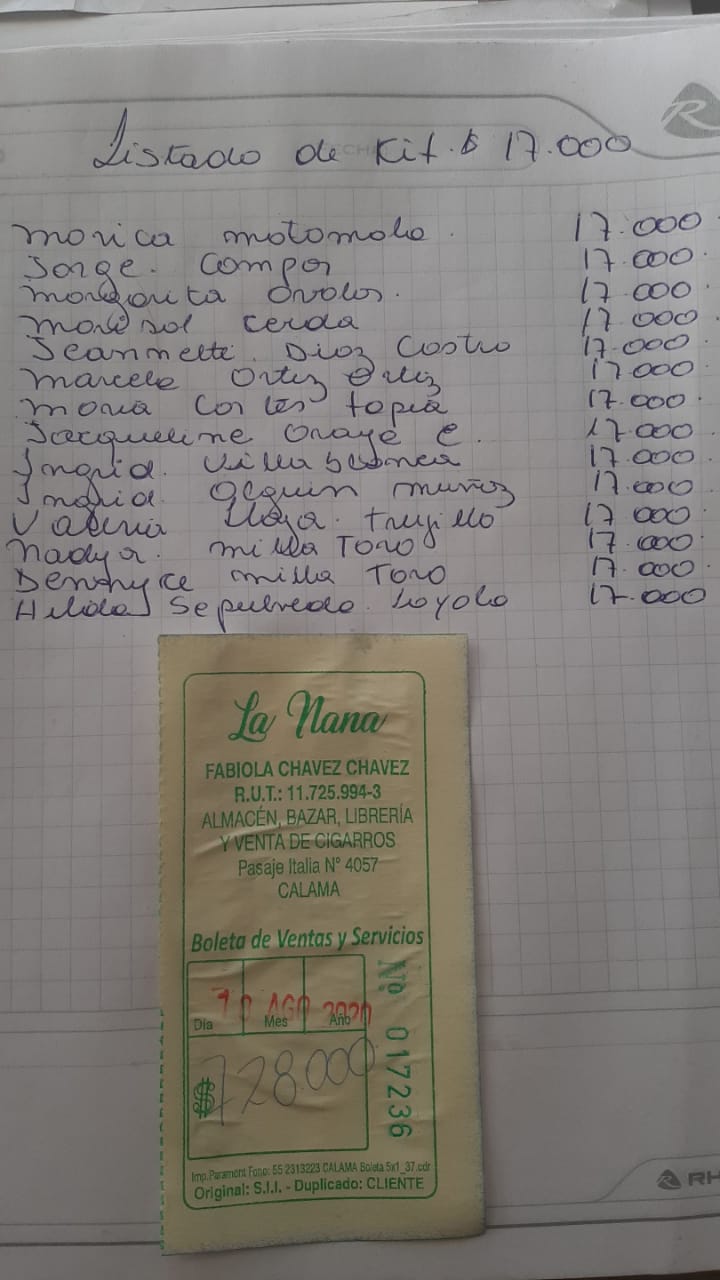 Listado de Kit. $ 17.000
Monica Motomola. 17.000
Jorge. Campos 17.000
Margarita Ovalos. 17.000
Marisol Cerda 17.000
Jeannette. Diaz Castro 17.000
Marcela Ortiz Ortiz 17.000
Maria Cortes Topia 17.000
Jacqueline Oraye C. 17.000
Ingrid. Villablanca 17.000
Ingrid. Olguin Muñoz 17.000
Valeria Llaja. Trujillo 17.000
Nadya. Milla Toro 17.000
Dennyce Milla Toro 17.000
Hilda Sepulveda. Loyola 17.000
La Nana
FABIOLA CHAVEZ CHAVEZ
R.U.T.: 11.725.994-3
ALMACÉN, BAZAR, LIBRERÍA
Y VENTA DE CIGARROS
Pasaje Italia N° 4057
CALAMA
Boleta de Ventas y Servicios
10 AGO 2020
Día Mes Año
Nº 017236
$ 728.000
Imp.Paramont Fono: 55 2313223 CALAMA Boleta 5x1_37.cdr
Original: S.I.I. - Duplicado: CLIENTE
RH